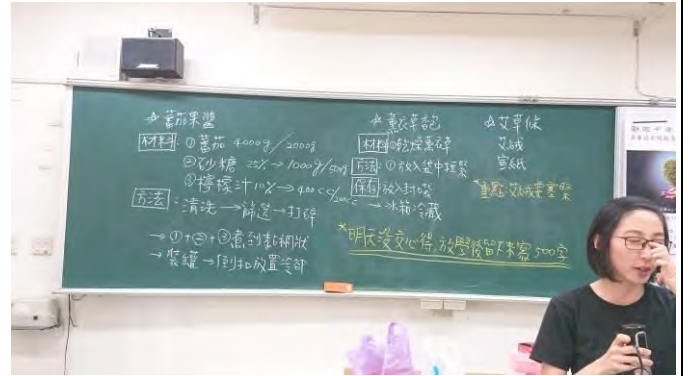 ☆蕃茄果醬
材料:①蕃茄 4000g/2000g
②砂糖 25%→1000g/500g
③檸檬汁10%→400cc/200cc
方法:清洗→篩選→打碎
→①+②+③煮到黏稠狀
→裝罐→倒扣放置冷卻
☆薰衣草包
材料:乾燥薰衣草
方法:①放入袋中綁緊
保存:放入封口袋
→冰箱冷藏
☆艾草條
艾絨
宣紙
*重點:艾絨要塞緊
*明天沒交心得,放學後留下來寫500字